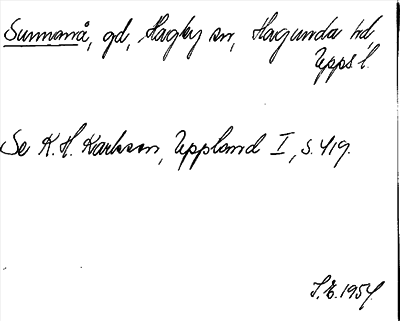 Sunnanå, gd, Hagby sn, Hagunda hd,
Upps l.
Se K. H. Karlsson, Uppland I, s. 419.
1954.